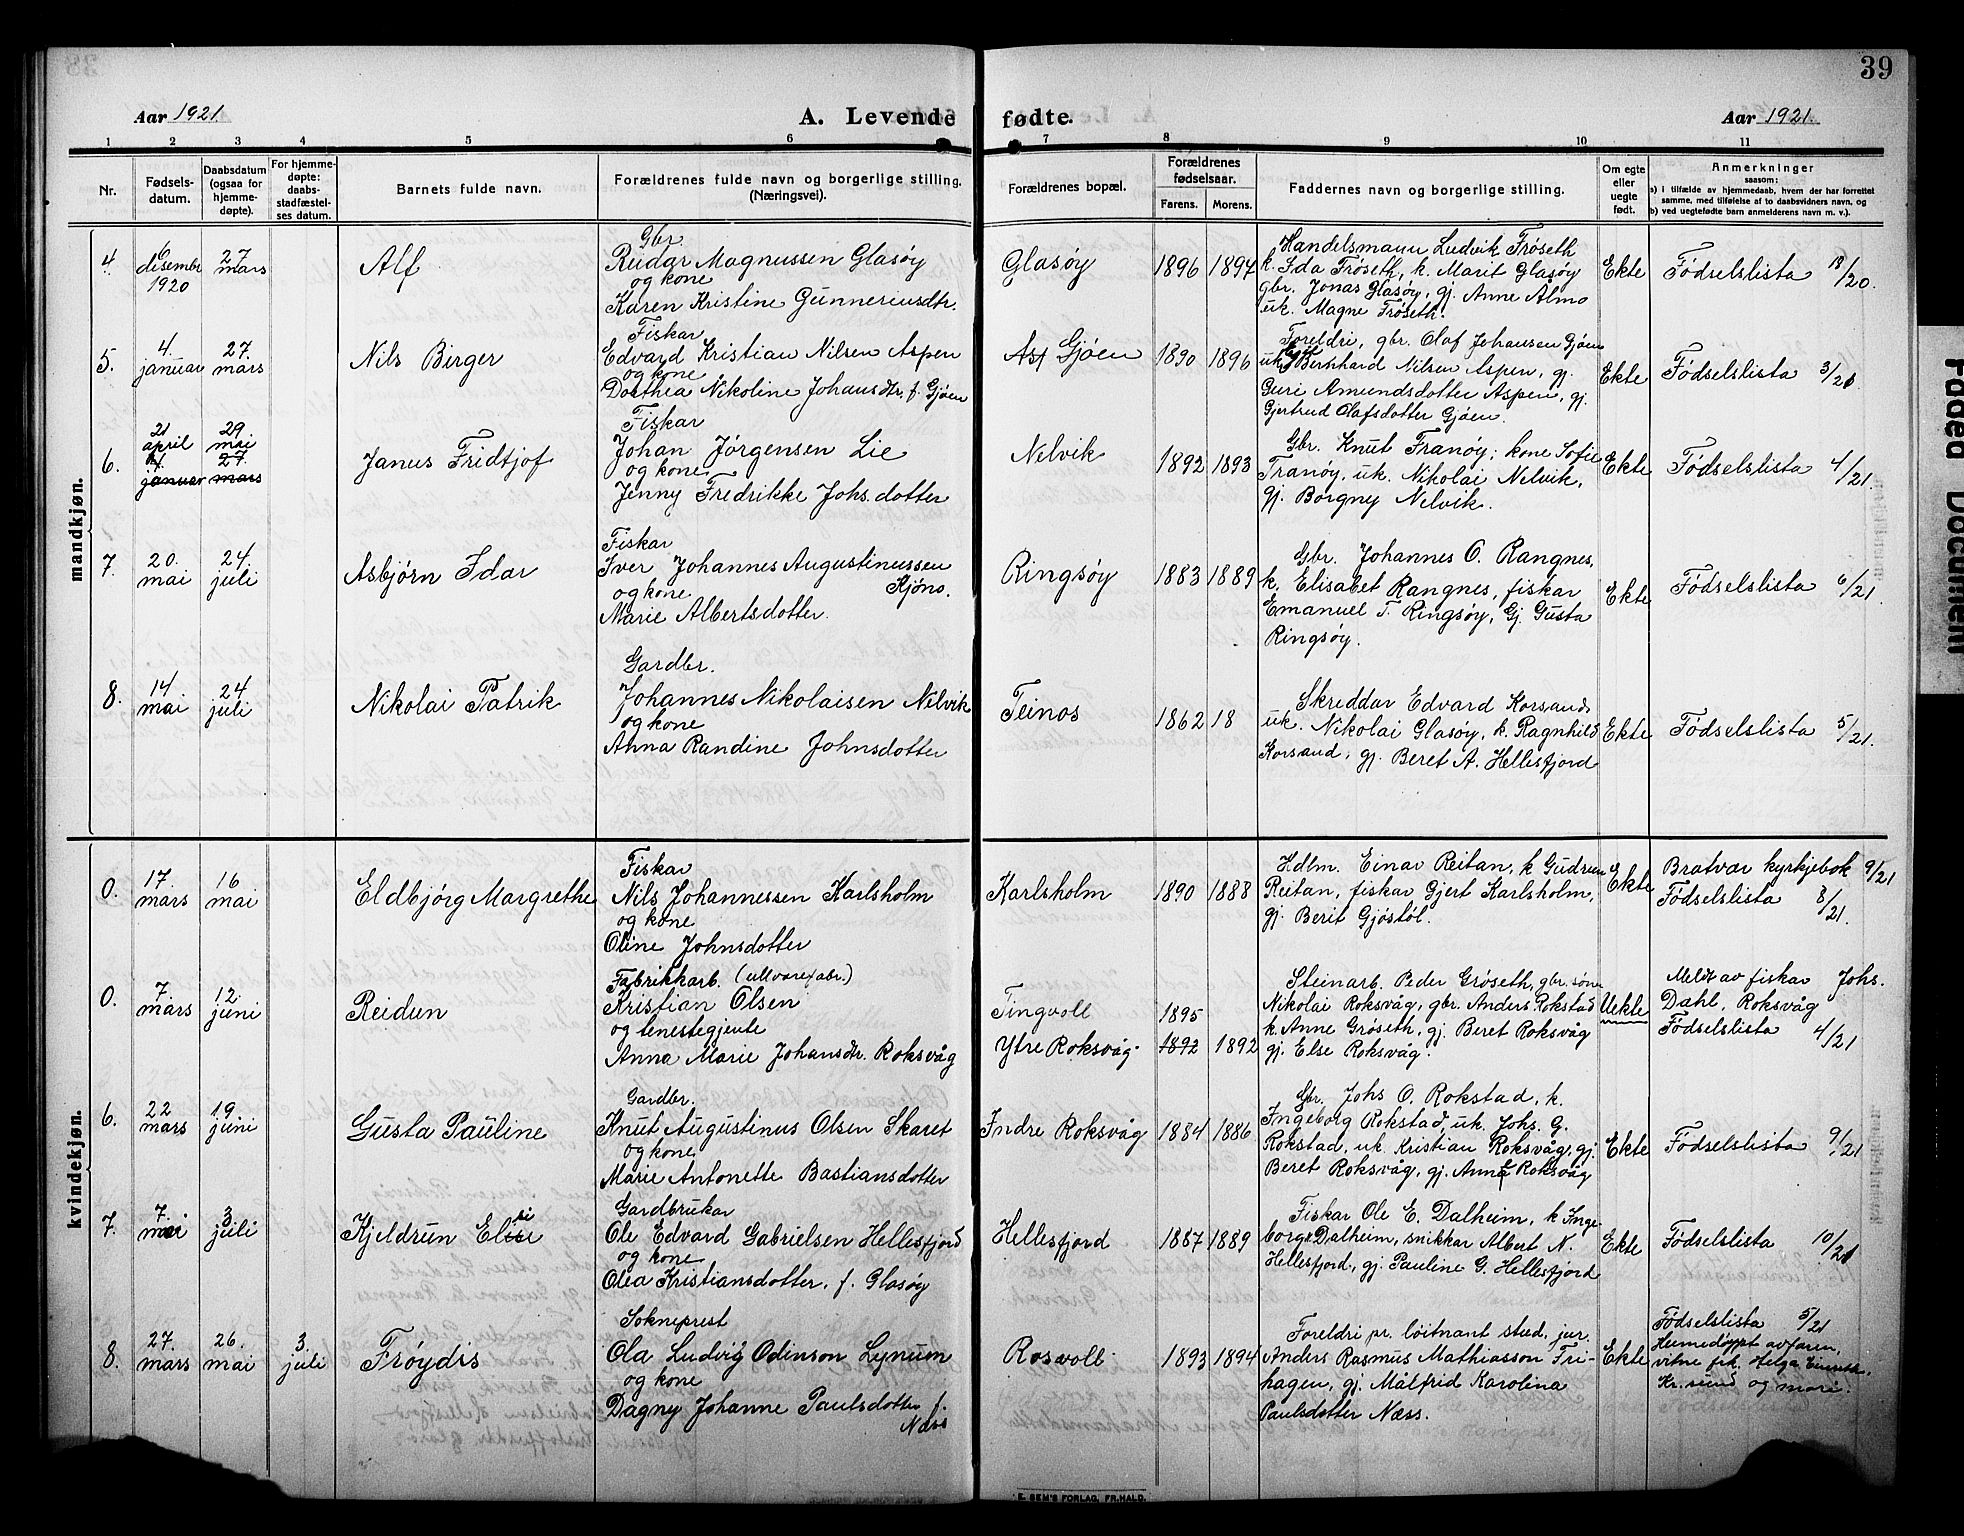 39
Aar 1921.
A. Levende fødte.
Aar 1921.
1 2 3 4 5 6 7 8 9 10 11
Nr.
Fødsels-
datum.
Daabsdatum
(ogsaa for
hjemme-
døpte).
For hjemme-
døpte:
daabs-
stadfæstel-
ses datum.
Barnets fulde navn.
Forældrenes fulde navn og borgerlige stilling.
(Næringsvei).
Forældrenes bopæl.
Forældrenes
fødselsaar.
Farens.
Morens.
Faddernes navn og borgerlige stilling.
Om egte
eller
uegte
født.
Anmerkninger
saasom:
a) i tilfælde av hjemmedaab, hvem der har forrettet
samme, med tilføielse af to daabsvidners navn, og
b) ved uegtefødte barn anmelderens navn m. v.).
mandkjøn.
4.
6
desember
1920
27
mars
Alf
Gbr.
Reidar Magnussen Glasøy
og kone
Karen Kristine Gunneriusdtr.
Glasøy
1896
1897
Handelsmann Ludvik Frøseth
k. Ida Frøseth, k. Marit Glasøy
gbr. Jonas Glasøy, gj. Anne Almo
uk. Magne Frøseth.
Ekte
Fødselslista 18/20.
5.
4.
januar
27.
mars
Nils Birger
Fiskar
Edvard Kristian Nilsen Aspen
og kone
Dorthea Nikoline Johansdtr. f. Gjøen
Gjøen
1890
1896
Foreldri, gbr. Olaf Johansen Gjøen
uk. Bernhard Nilsen Aspen, gj.
Guri Amundsdotter Aspen, gj.
Gjertrud Olafsdotter Gjøen.
Ekte
Fødselslista 3/21.
6.
21
april
4.
januar
29.
mai
27.
mars
Janus Fridtjof
Fiskar
Johan Jørgensen Lie
og kone
Jenny Fredrikke Johs.dotter
Nelvik
1892
1893
Gbr. Knut Tranøy; kone Sofie
Tranøy, uk. Nikolai Nelvik,
gj. Borgny Nelvik.
Ekte
Fødselslista 4/21.
7.
20.
mai
24.
juli
Asbjørn Idar
Fiskar
Iver Johannes Augustinussen
og kone Kjøno.
Marie Albertsdotter.
Ringsøy
1883
1889
Gbr. Johannes O. Rangnes,
k. Elisabet Rangnes, fiskar
Emanuel T. Ringsøy, Gj. Gusta
Ringsøy.
Ekte
Fødselslista 6/21.
8.
14
mai
24
juli
Nikolai Patrik
Gardbr.
Johannes Nikolaisen Nelvik
og kone
Anna Randine Johnsdotter
Teinos
1862
18
Skreddar Edvard Korsand,
uk. Nikolai Glasøy, k. Ragnhild
Korsand, gj. Beret A. Hellesfjord
Ekte
Fødselslista 5/21.
kvindekjøn.
0.
17.
mars
16
mai
Eldbjørg Margrethe
Fiskar
Nils Johannessen Karlsholm
og kone
Oline Johnsdotter
Karlsholm
1890
1888
Hdlm. Einar Reitan, k Gudrun
Reitan, fiskar Gjert Karlsholm,
gj. Berit Gjøstøl.
Ekte
Bratvær kyrkjebok 9/21
Fødselslista 8/21.
0.
7.
mars
12
juni
Reidun
Fabrikkarb. (ullvarefabr.)
Kristian Olsen
og tenestegjente
Anna Marie Johansdtr. Roksvåg
Tingvoll
Ytre Roksvåg.
1895
1892
1892
Steinarb. Peder Grøseth, gbr. søn
Nikolai Roksvåg, gbr. Anders Rokstad
k. Anne Grøseth, gj. Beret Roksvåg
gj. Else Roksvåg.
Uekte
Meldt av fiskar Johs.
Dahl, Roksvåg
Fødselslista 4/21
6.
22
mars
19
juni
Gusta Pauline
Gardbr.
Knut Augustinus Olsen Skaret
og kone
Marie Antonette Bastiansdotter
Indre Roksvåg
1884
1886
Gbr. Johs O. Rokstad, k.
Ingeborg Rokstad, uk. Johs. G.
Rokstad, uk. Kristian Roksvåg, gj.
Beret Roksvåg, gj. Anne Roksvåg
Ekte
Fødselslista 9/21
7.
7.
mai
3
juli
Kjeldrun Elsi
Gardbrukar
Ole Edvard Gabrielsen Hellesfjord
og kone
Olea Kristiansdotter, f. Glasøy
Hellesfjord
1887
1889
Fiskar Ole E. Dalheim, k Inge-
borg Dalheim, snikkar Albert N.
Hellesfjord, gj. Pauline G. Hellesfjord
Ekte
Fødselslista 10/21
8.
27.
mars
26.
mai
3.
juli
Frøydis
Sokneprest
Ola Ludvig Odinson Lynum
og kone
Dagny Johanne Paulsdotter f.
Næss
Rosvoll
1893
1894
Foreldri, pr. løitnant stud. jur.
Anders Rasmus Mathiasson Fri-
hagen, gj. Målfrid Karolina
Paulsdotter Næss.
Ekte
Fødselslista 5/21
Heimedøypt av faren,
vitne frk. Helga
Kr.sund og mori.
E. SEM'S FORLAG, FR.HALD.
Faded Document